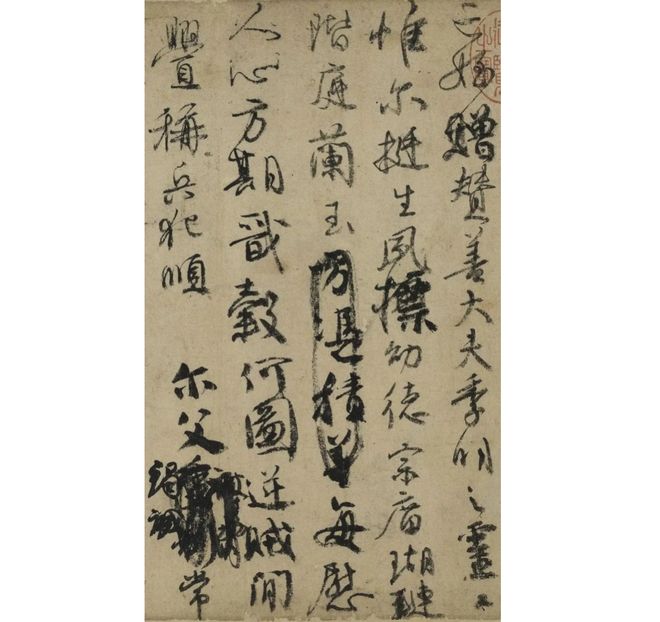 亡姪贈贊善大夫季明之靈曰
惟尔挺生夙標幼德宗庿瑚璉
階庭蘭玉方憑積善每慰
人心方期戩穀何圖逆賊閒
釁稱兵犯順尔父竭誠常